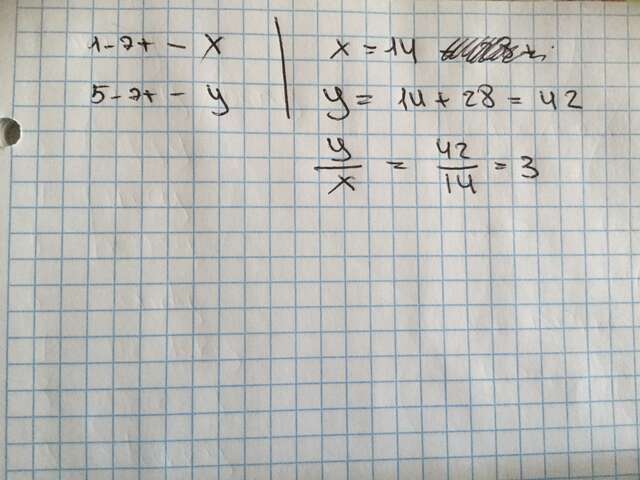 1-эт - x
5-эт - y
x = 14
y = 14 + 28 = 42
y/x = 42/14 = 3